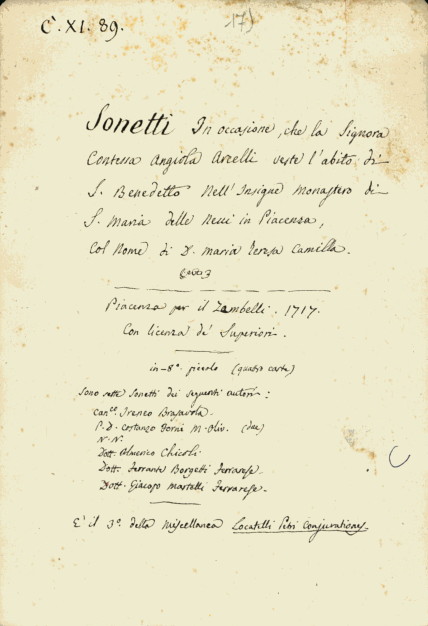 C̀. XI. 89.
17)
Sonetti In occasione, che la Signora
Contessa Angiola Arcelli veste l'abito di
S. Benedetto Nell'Insigne Monastero di
S. Maria delle Nevi in Piacenza,
Col Nome di D. Maria Teresa Camilla.
Piacenza per il Zambelli. 1717.
Con licenza de' Superiori.
in-8º. piccolo (quatro carte)
Sono sette Sonetti dei seguenti autori:
Can.co Ireneo Brasavola.
P. D. Costanzo Forni M. Oliv. (due)
N. N.
Dott. Almerico Chicoli
Dott. Ferrante Borgetti Ferrarese.
Dott. Giacopo Martelli Ferrarese.
E' il 3º. della Miscellanea Locatelli Petri Conjurationes.